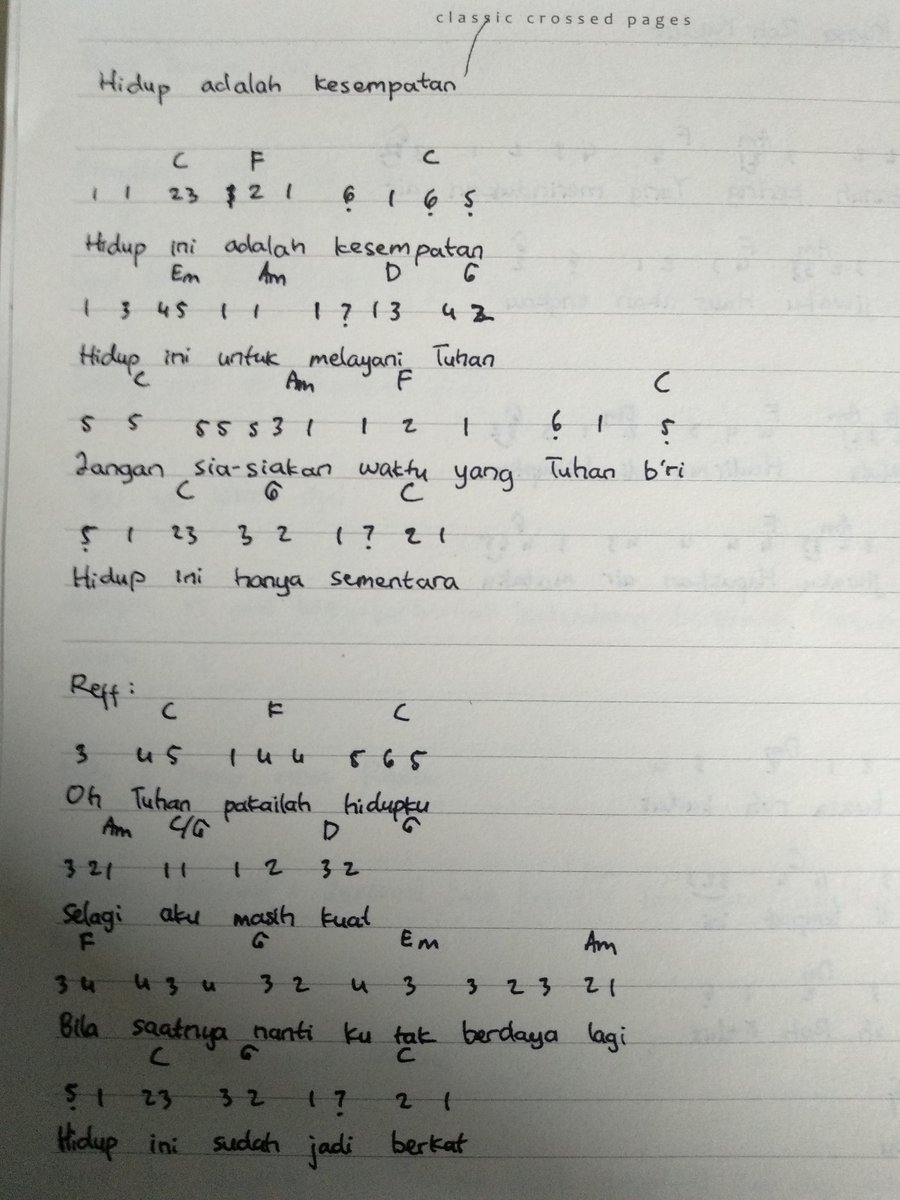 classic crossed pages
Hidup adalah kesempatan
C F C
1 1 23 2 1 6̣ 1 6̣ 5̣
Hidup ini adalah kesempatan
Em Am D G
1 3 45 1 1 1 7̣ 13 4 2
Hidup ini untuk melayani Tuhan
C Am F C
5 5 5 5 5 3 1 1 2 1 6̣ 1 5̣
Jangan sia-siakan waktu yang Tuhan b'ri
C G C
5̣ 1 23 3 2 1 7̣ 2 1
Hidup ini hanya sementara
Reff:
C F C
3 4 5 1 4 4 5 6 5
Oh Tuhan pakailah hidupku
Am C/G D G
3 21 11 1 2 3 2
Selagi aku masih kuat
F G Em Am
3 4 4 3 4 3 2 4 3 3 2 3 2 1
Bila saatnya nanti ku tak berdaya lagi
C G C
5̣ 1 23 3 2 1 7̣ 2 1
Hidup ini sudah jadi berkat